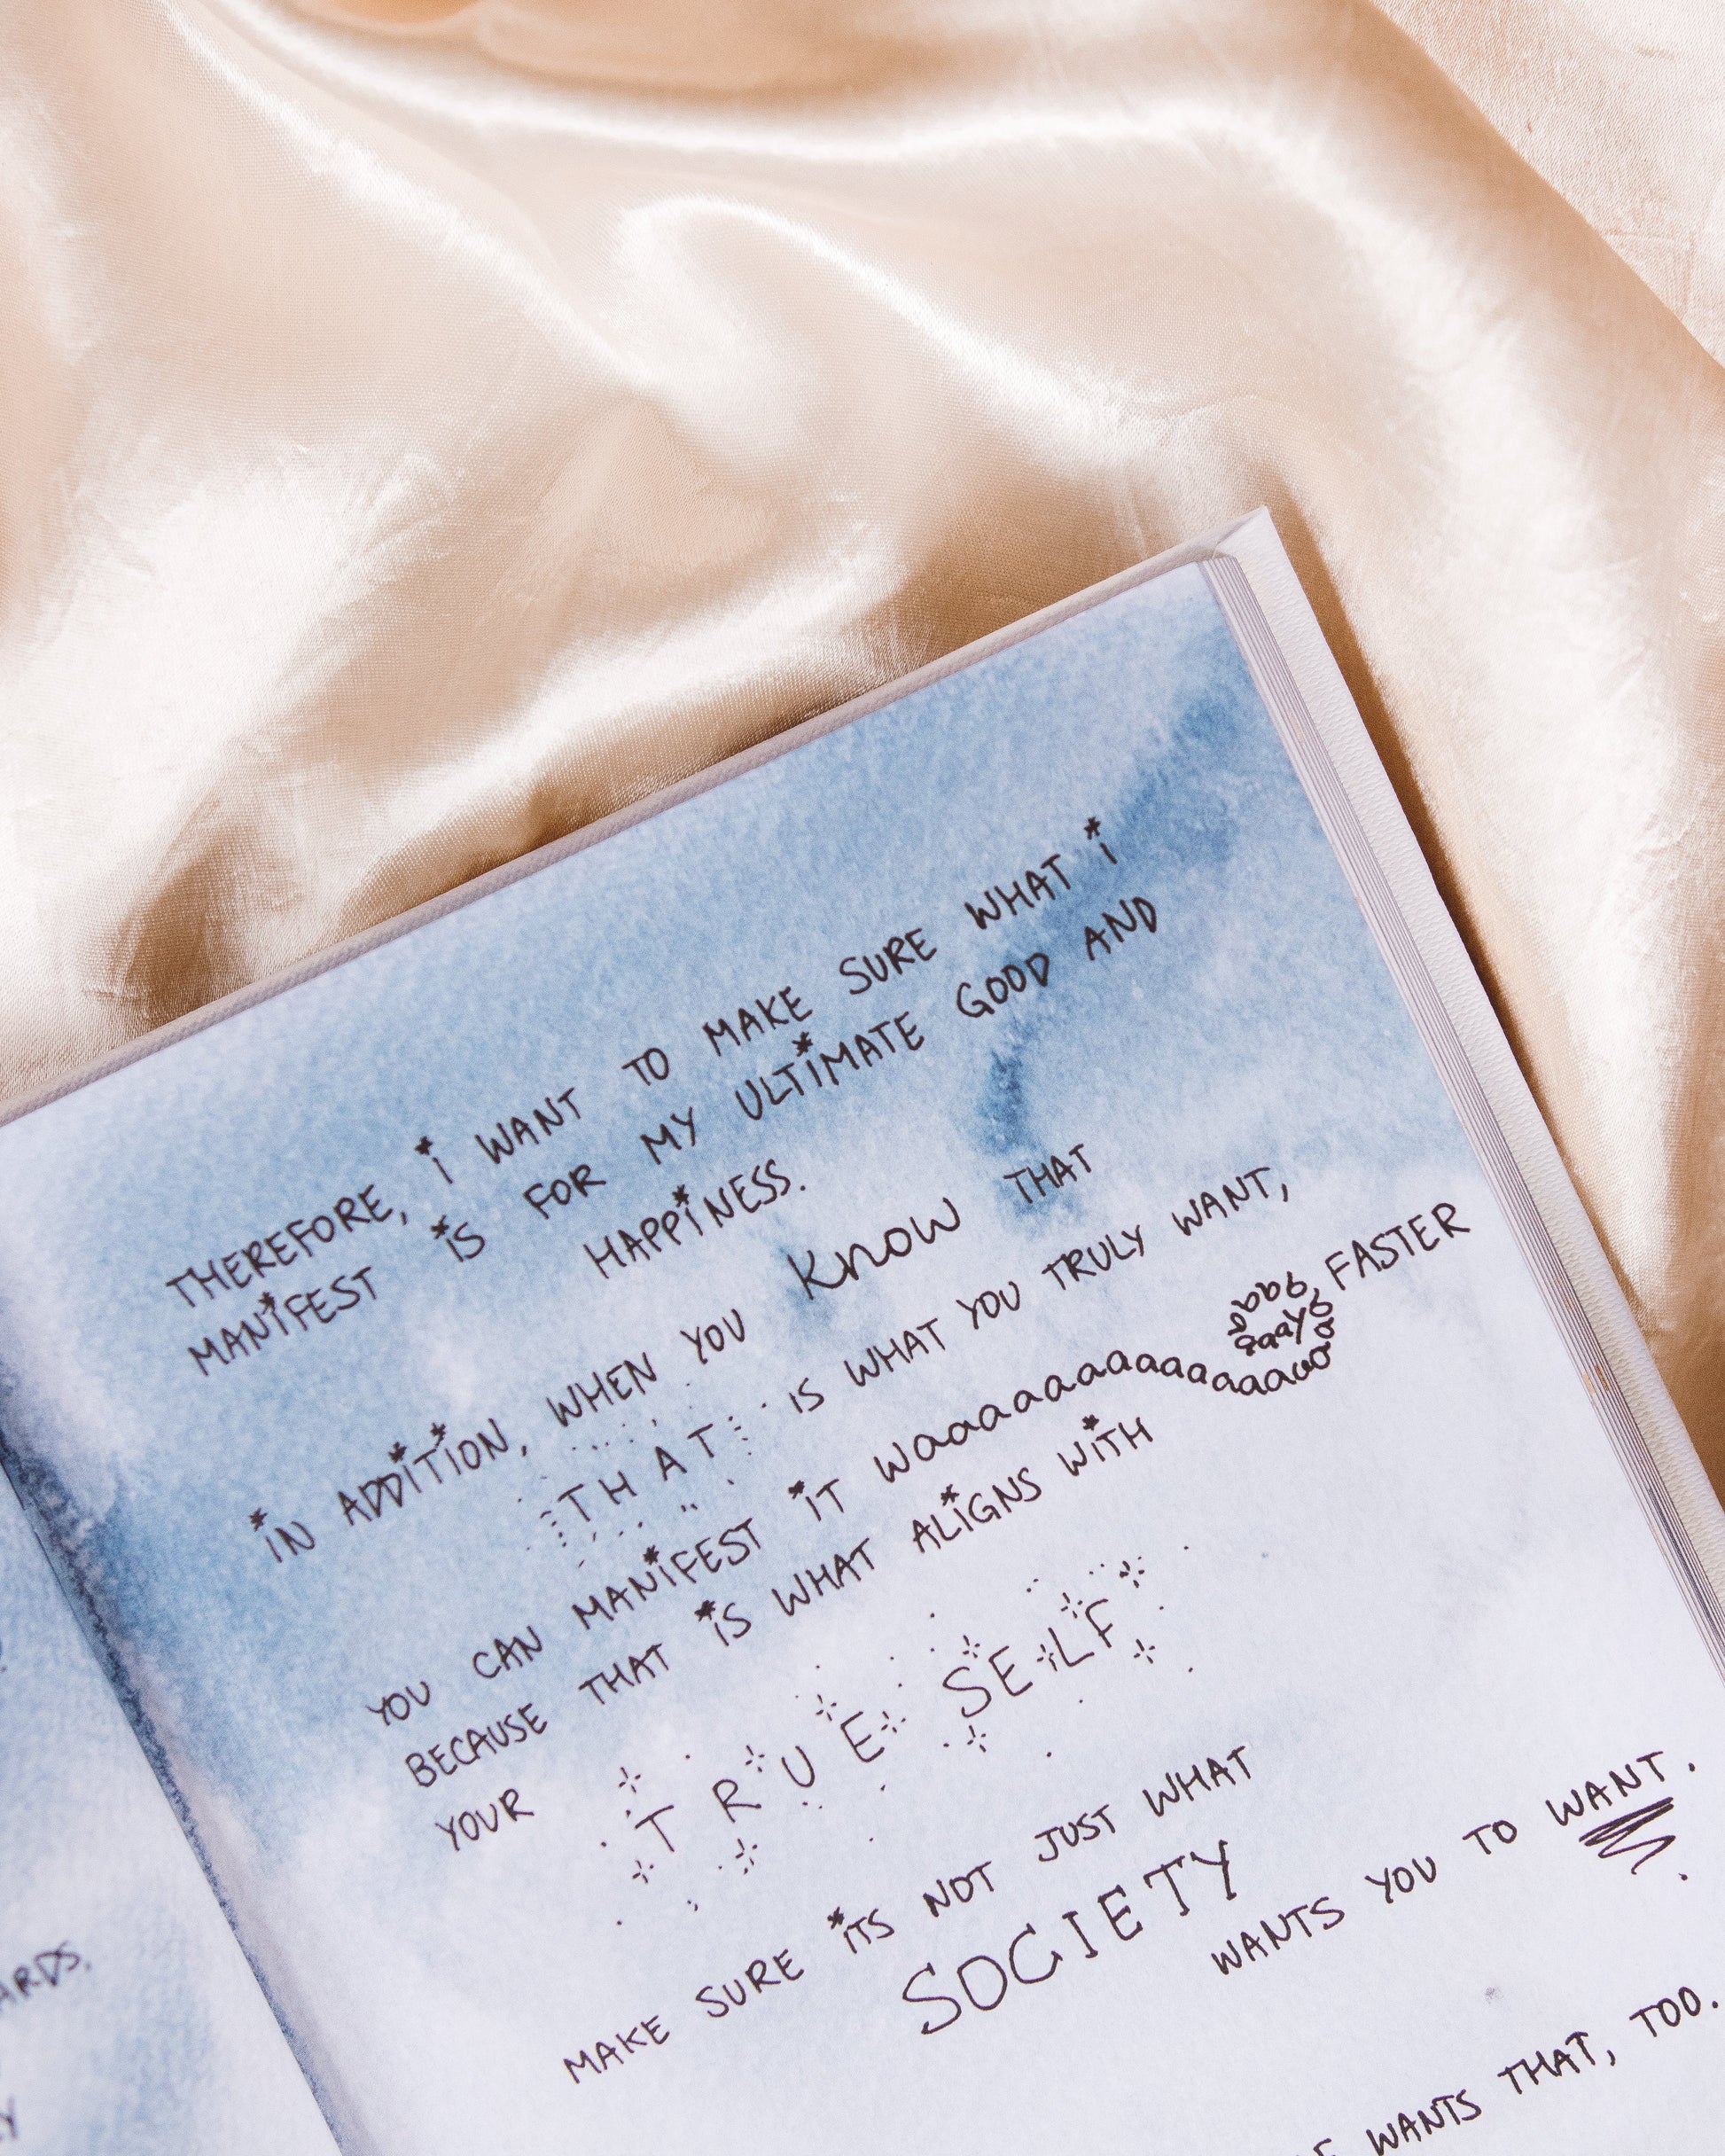 THEREFORE, i WANT TO MAKE SURE WHAT i
MANiFEST iS FOR MY ULTiMATE GOOD AND
HAPPiNESS.
iN ADDiTiON, WHEN YOU Know THAT
THAT iS WHAT YOU TRULY WANT,
YOU CAN MANiFEST iT waaaaaaaaaaaaaaaaaaaaaaaaaaaaaay FASTER
BECAUSE THAT iS WHAT ALiGNS WiTH
YOUR TRUE SELF
MAKE SURE iTS NOT JUST WHAT
SOCIETY
WANTS YOU TO WANT.
WANTS THAT, TOO.
ARDS.